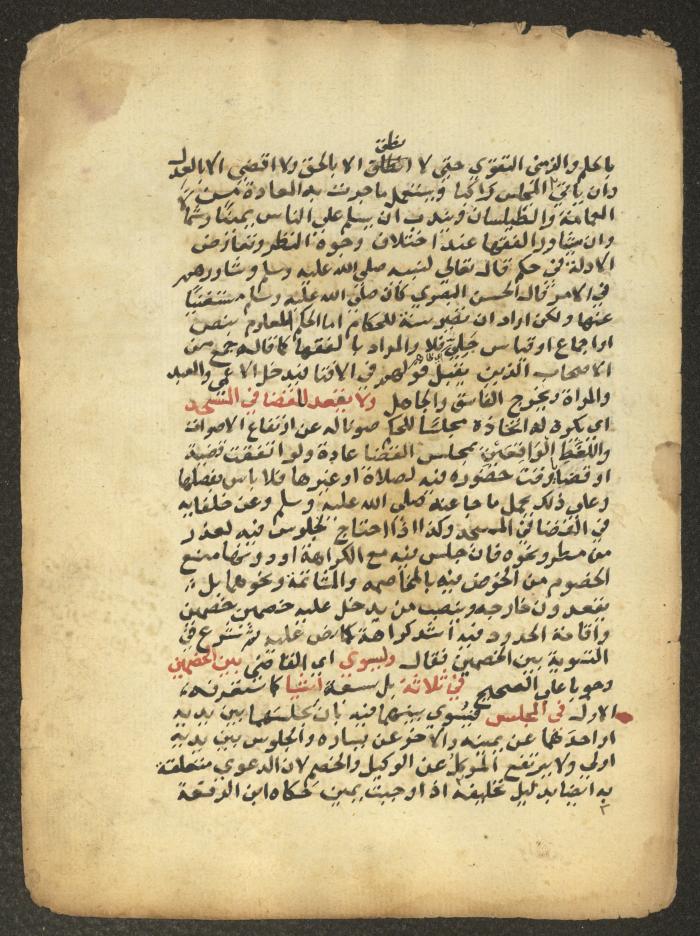 نطق
بالحلم والزمني التقوي حتي لا انطلق الا بالحق ولا اقضي الا بالعدل
وان ياتي المجلس راكبا ويستعمل ما جرت به العادة من
العمامة والطيلسان ويندب ان يسلم علي الناس يمينا وشمالا
وان يشاور الفقها عند اختلاف وجوه النظر وتعارض
الادلة في حكم قال تعالي لنبيه صلي الله عليه وسلم وشاورهم
في الامر قال الحسن البصري كان صلي الله عليه وسلم مستغنيا
عنها ولكن اراد ان تصير سنة للحكام اما الحكم المعلوم بنص
او اجماع او قياس جلي فلا والمراد بالفقها كما قاله جمع من
الاصحاب الذين يقبل قولهم في الافتا فيدخل الاعمي والعبد
والمراة ويخرج الفاسق والجاهل ولا يقعد للقضا في المسجد
اي يكره له اتخاذه مجلسا للحكم صونا له عن ارتفاع الاصوات
واللغط الواقعين بمجلس القضا عادة ولو اتفقت قضية
او قضايا وقت حضوره فيه لصلاة او غيرها فلا باس بفصلها
وعلي ذلك يحمل ما جا عنه صلي الله عليه وسلم وعن خلفايه
في القضا في المسجد وكذا اذا احتاج لجلوس فيه لعذر
من مطر ونحوه فان جلس فيه مع الكراهة او دونها منع
الخصوم من الخوض فيه بالمخاصمه والمشاتمة ونحوهما بل
يقعدون خارجه وينصب من يدخل عليه خصمين خصمين
واقامة الحدود فيه اشد كراهة كما نص عليه ثم شرع في
التسوية بين الخصمين فقال ويسوي اي القاضي بين الخصمين
وجوبا علي الصحيح في ثلاثة بل سبعة اشيا كما ستعرفه
الاول في المجلس فيسوي بينهما فيه بان يجلسهما بين يديه
او احدهما عن يمينه والاخر عن يساره والجلوس بين يديه
اولي ولا يرتفع الموكل عن الوكيل والخصم لان الدعوي متعلقة
به ايضا بدليل تحليفه اذا وجبت يمين حكاه ابن الرفعة